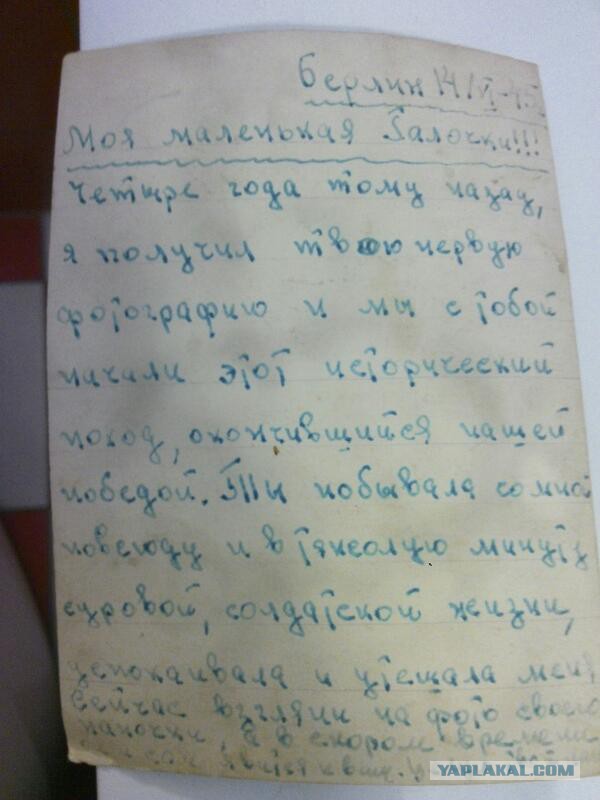 Берлин 14/VI-45.
Моя маленькая Галочка!!!
Четыре года тому назад,
я получил твою первую
фотографию и мы с тобой
начали этот исторический
поход, окончившийся нашей
победой. Ты побывала со мной
повсюду и в тяжолую минуту
суровой, солдатской жизни,
успокаивала и утешала меня,
Сейчас взгляни на фото своего
папочки, а в скором времени
сам явится к вам.
YAPLAKAL.COM